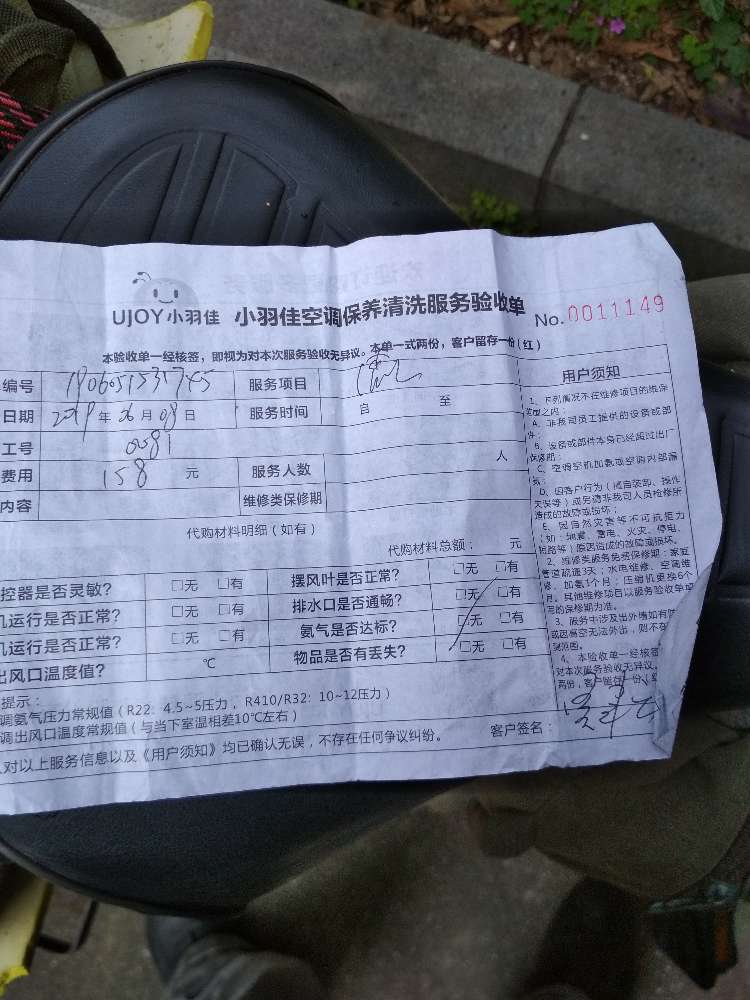 UJOY小羽佳 小羽佳空调保养清洗服务验收单 No.0011149
本验收单一经核签，即视为对本次服务验收无异议。本单一式两份，客户留存一份（红）
编号 1906051531745 服务项目
日期 2019年06月08日 服务时间 自 至
工号 0081
费用 158 元 服务人数 人
内容 维修类保修期
代购材料明细（如有）
代购材料总额： 元
控器是否灵敏？ □无 □有 摆风叶是否正常？ □无 □有
机运行是否正常？ □无 □有 排水口是否通畅？ □无 □有
机运行是否正常？ □无 □有 氨气是否达标？ □无 □有
出风口温度值？ ℃ 物品是否有丢失？ □无 □有
提示：
调氨气压力常规值（R22: 4.5~5压力，R410/R32: 10~12压力）
调出风口温度常规值（与当下室温相差10℃左右）
对以上服务信息以及《用户须知》均已确认无误，不存在任何争议纠纷。 客户签名：
用户须知
1、下列情况不在维修项目的维保
范围之内：
A、非我司员工提供的设备或部
件；
B、设备或部件本身已经超过出厂
保修期；
C、空调主机加氨或空调内部漏
氨；
D、因客户行为（擅自装卸、操作
失误等）或另请非我司人员检修所
造成的故障或损坏；
E、因自然灾害等不可抗拒力
（如：地震、雷电、火灾、停电、
短路等）原因造成的故障或损坏。
2、维修类服务免费保修期：家庭
管道疏通3天；水电维修、空调维
修、加氨1个月；压缩机更换6个
月。其他维修项目以服务验收单填
写的保修期为准。
3、服务中涉及出外墙如有
或因高空无法外出，则不在
4、本验收单一经核签
对本次服务验收无异议。
两份，客户留存一份（红